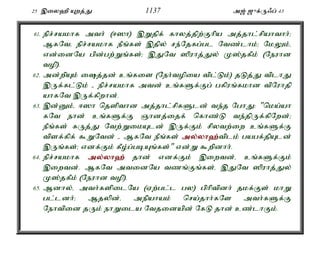 25 இலைஹியுறத்து 1137 அஜ் ஜுக்ருஃப் 43
61. நிச்சயமாக அவர் (ஈஸா) இறுதிக் காலத்திற்குரிய அத்தாட்சியாவார்;
ஆகவே, நிச்சயமாக நீங்கள் இதில் சந்தேகப்பட வேண்டாம்; மேலும்,
என்னையே பின்பற்றுங்கள்; இதுவே ஸிராத்துல் முஸ்தகீம் (நேரான
வழி).
62. அன்றியும் ஷைத்தான் உங்களை (நேர்வழியை விட்டும்) தடுத்து விடாது
இருக்கட்டும் - நிச்சயமாக அவன் உங்களுக்குப் பகிரங்கமான விரோதி
யாகவே இருக்கிறான்.
63. இன்னும், ஈஸா தெளிவான அத்தாட்சிகளுடன் வந்த போது: "மெய்யா
கவே நான் உங்களுக்கு ஞானத்தைக் கொண்டு வந்திருக்கிறேன்;
நீங்கள் கருத்து வேற்றுமையுடன் இருக்கும் சிலவற்றை உங்களுக்கு
விளக்கிக் கூறுவேன் - ஆகவே நீங்கள் அல்லாஹ்விடம் பயபக்தியுடன்
இருங்கள்; எனக்கும் கீழ்ப்படியுங்கள்" என்று கூறினார்.
64. நிச்சயமாக அல்லாஹ் தான் எனக்கும் இறைவன், உங்களுக்கும்
இறைவன். ஆகவே அவனையே வணங்குங்கள், இதுவே ஸிராத்துல்
முஸ்தகீம் (நேரான வழி).
65. ஆனால், அவர்களிடையே (ஏற்பட்ட பல) பிரிவினர் தமக்குள் மாறு
பட்டனர்; ஆதலின், அநியாயம் செய்தார்களே அவர்களுக்கு
நோவினை தரும் நாளுடைய வேதனையின் கேடு தான் உண்டாகும்.